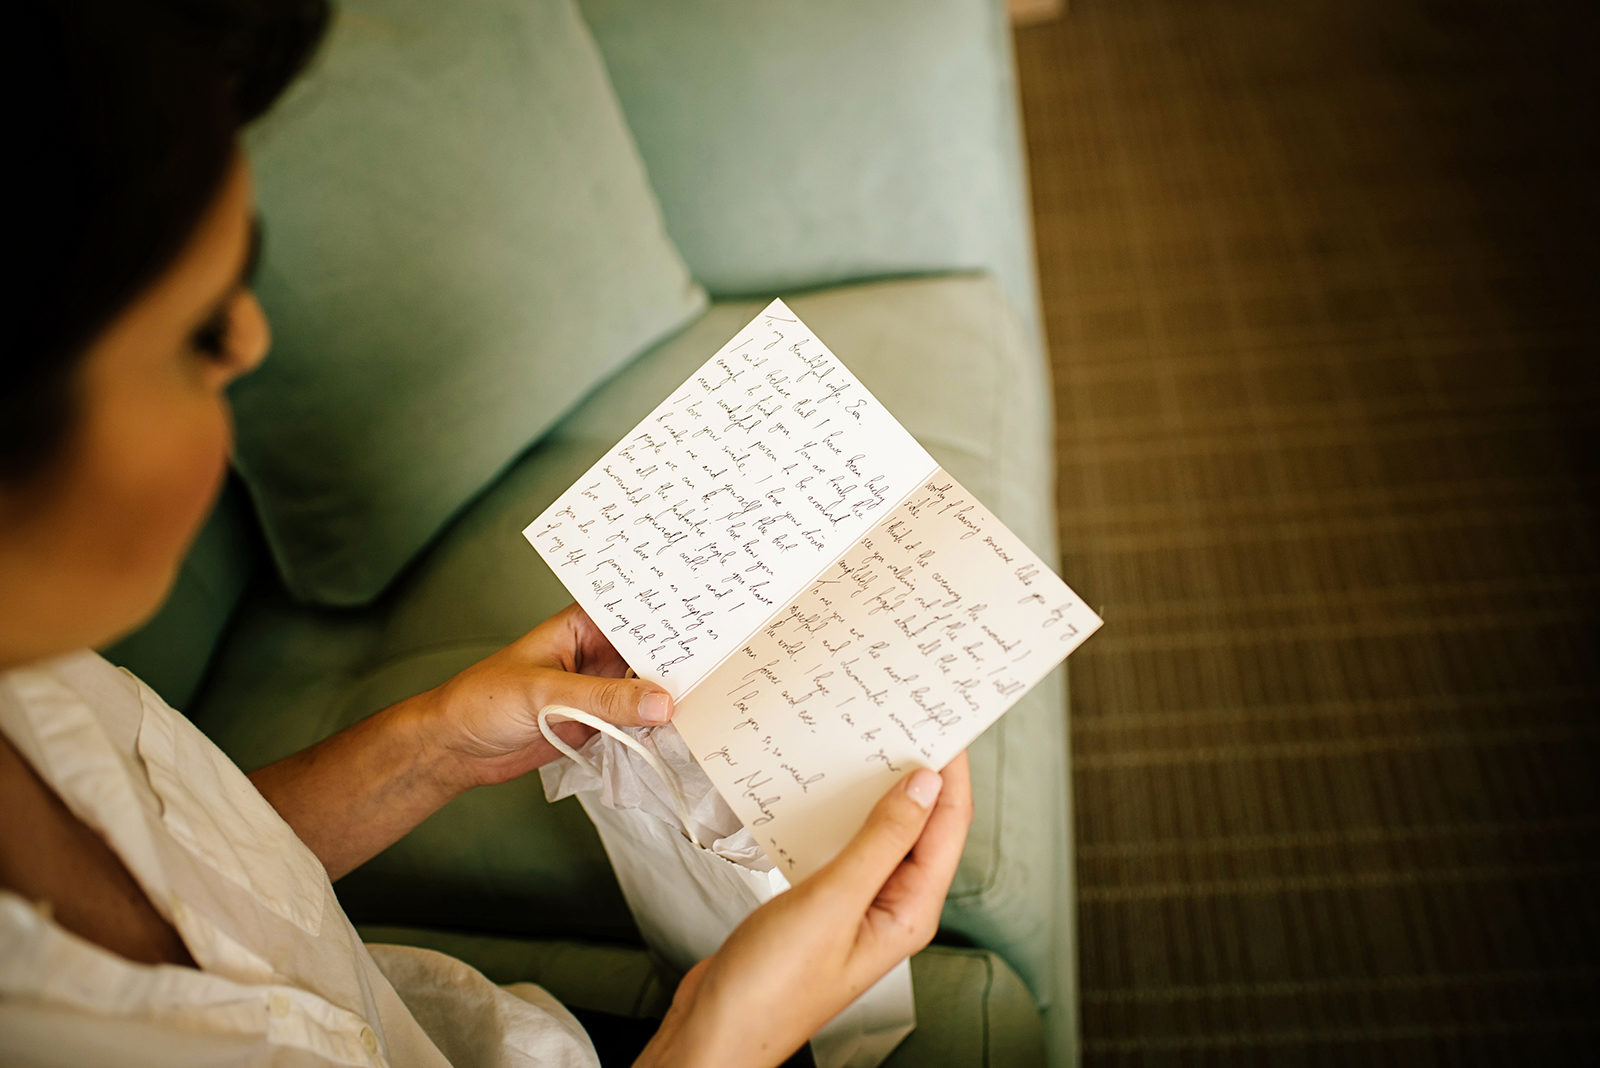 To my beautiful wife, Eva.
I can't believe that I have been lucky
enough to find you. You are truly the
most wonderful person to be around.
I love your smile, I love your drive
to make me and yourself the best
people we can be, I love how you
love all the fantastic people you have
surrounded yourself with, and I
love that you love me as deeply as
you do. I promise that every day
of my life I will do my best to be
worthy of having someone like you by my
side.
I think of the ceremony, the moment I
see you walking out of the door, I will
completely forget about all the others.
To me, you are the most beautiful,
and charismatic woman in
the world. I hope I can be your
man forever and ever.
I love you so, so much
your
xx